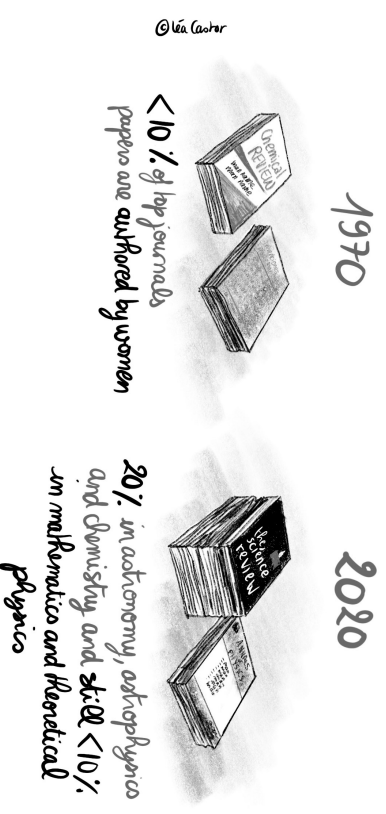 ©Léa Castor
1970
Chemical
REVIEW
<10% of top journals
papers are authored by women
2020
the
science
review
20% in astronomy, astrophysics
and chemistry and still <10%
in mathematics and theoretical
physics